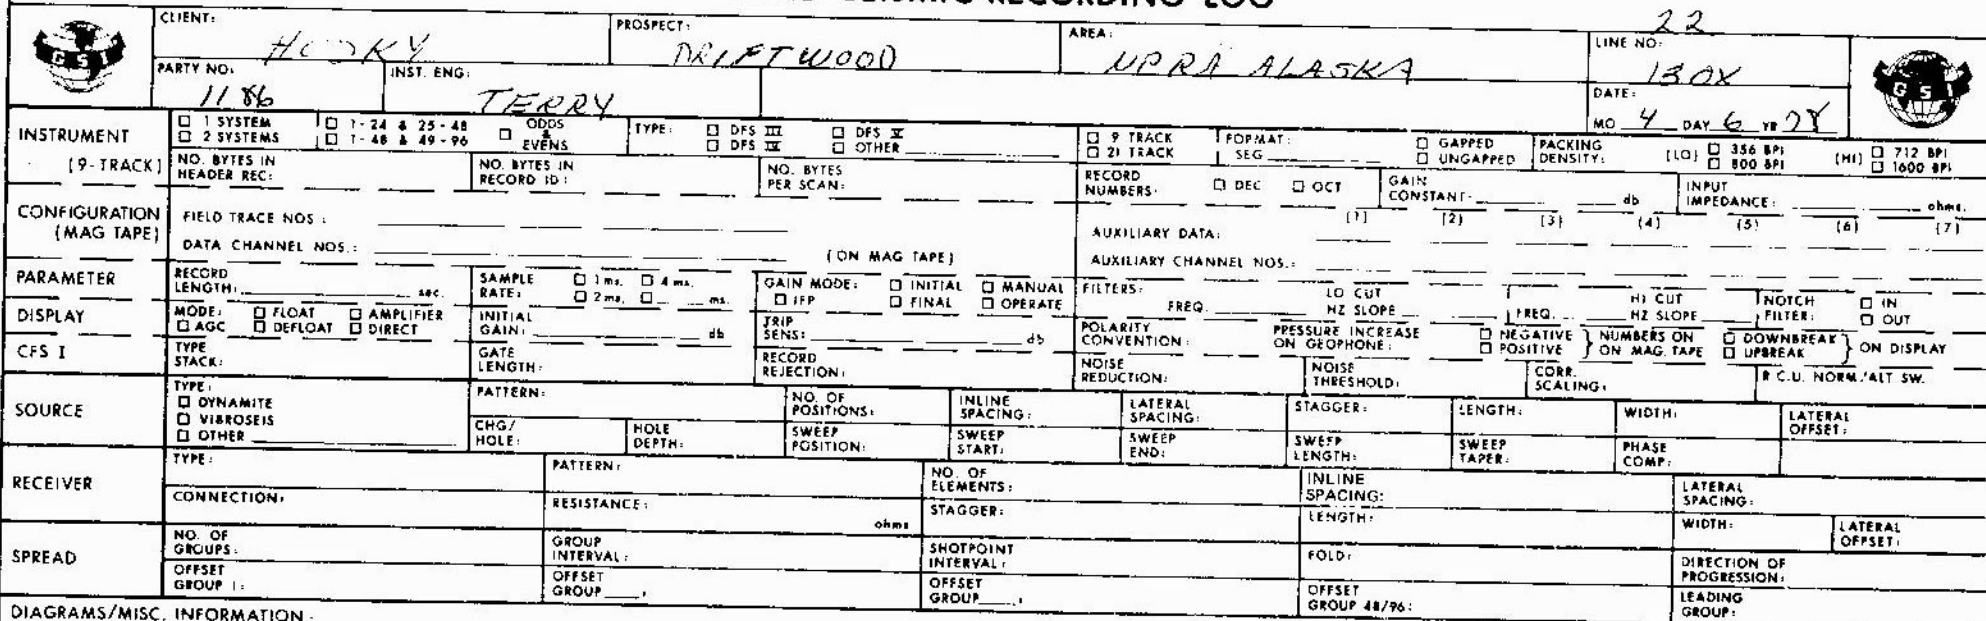 SEISMIC RECORDING LOG
GSI
CLIENT: HUSKY
PROSPECT: DRIFTWOOD
AREA: NPRA ALASKA
22
LINE NO: 130X
GSI
PARTY NO: 1186
INST. ENG: TERRY
DATE: MO 4 DAY 6 YR 78
INSTRUMENT
□ 1 SYSTEM □ 1-24 & 25-48 □ ODDS & EVENS
□ 2 SYSTEMS □ 1-48 & 49-96
TYPE: □ DFS III □ DFS V
□ DFS IV □ OTHER
□ 9 TRACK
□ 21 TRACK
FORMAT: SEG □ GAPPED
□ UNGAPPED
PACKING DENSITY: (LO) □ 356 BPI (HI) □ 712 BPI
□ 800 BPI □ 1600 BPI
(9-TRACK)
NO. BYTES IN HEADER REC:
NO. BYTES IN RECORD ID:
NO. BYTES PER SCAN:
RECORD NUMBERS: □ DEC □ OCT
GAIN CONSTANT: db
INPUT IMPEDANCE: ohms.
CONFIGURATION (MAG TAPE)
FIELD TRACE NOS:
DATA CHANNEL NOS.: (ON MAG TAPE)
(1) (2) (3) (4) (5) (6) (7)
AUXILIARY DATA:
AUXILIARY CHANNEL NOS.:
PARAMETER
RECORD LENGTH: sec.
SAMPLE RATE: □ 1 ms. □ 4 ms.
□ 2 ms. □ ms.
GAIN MODE: □ INITIAL □ MANUAL
□ IFP □ FINAL □ OPERATE
FILTERS: LO CUT FREQ. HZ SLOPE
HI CUT FREQ. HZ SLOPE
NOTCH FILTER: □ IN
□ OUT
DISPLAY
MODE: □ FLOAT □ AMPLIFIER
□ AGC □ DEFLOAT □ DIRECT
INITIAL GAIN: db
TRIP SENS: db
POLARITY CONVENTION: PRESSURE INCREASE ON GEOPHONE: □ NEGATIVE □ POSITIVE } NUMBERS ON ON MAG. TAPE □ DOWNBREAK □ UPBREAK } ON DISPLAY
CFS I
TYPE STACK:
GATE LENGTH:
RECORD REJECTION:
NOISE REDUCTION:
NOISE THRESHOLD:
CORR. SCALING:
R.C.U. NORM./ALT SW.
SOURCE
TYPE:
□ DYNAMITE
□ VIBROSEIS
□ OTHER
PATTERN:
NO. OF POSITIONS:
INLINE SPACING:
LATERAL SPACING:
STAGGER:
LENGTH:
WIDTH:
LATERAL OFFSET:
CHG/ HOLE:
HOLE DEPTH:
SWEEP POSITION:
SWEEP START:
SWEEP END:
SWEEP LENGTH:
SWEEP TAPER:
PHASE COMP:
RECEIVER
TYPE:
PATTERN:
NO. OF ELEMENTS:
INLINE SPACING:
LATERAL SPACING:
CONNECTION:
RESISTANCE: ohms
STAGGER:
LENGTH:
WIDTH:
LATERAL OFFSET:
SPREAD
NO. OF GROUPS:
GROUP INTERVAL:
SHOTPOINT INTERVAL:
FOLD:
DIRECTION OF PROGRESSION:
OFFSET GROUP 1:
OFFSET GROUP :
OFFSET GROUP :
OFFSET GROUP 48/96:
LEADING GROUP:
DIAGRAMS/MISC. INFORMATION: